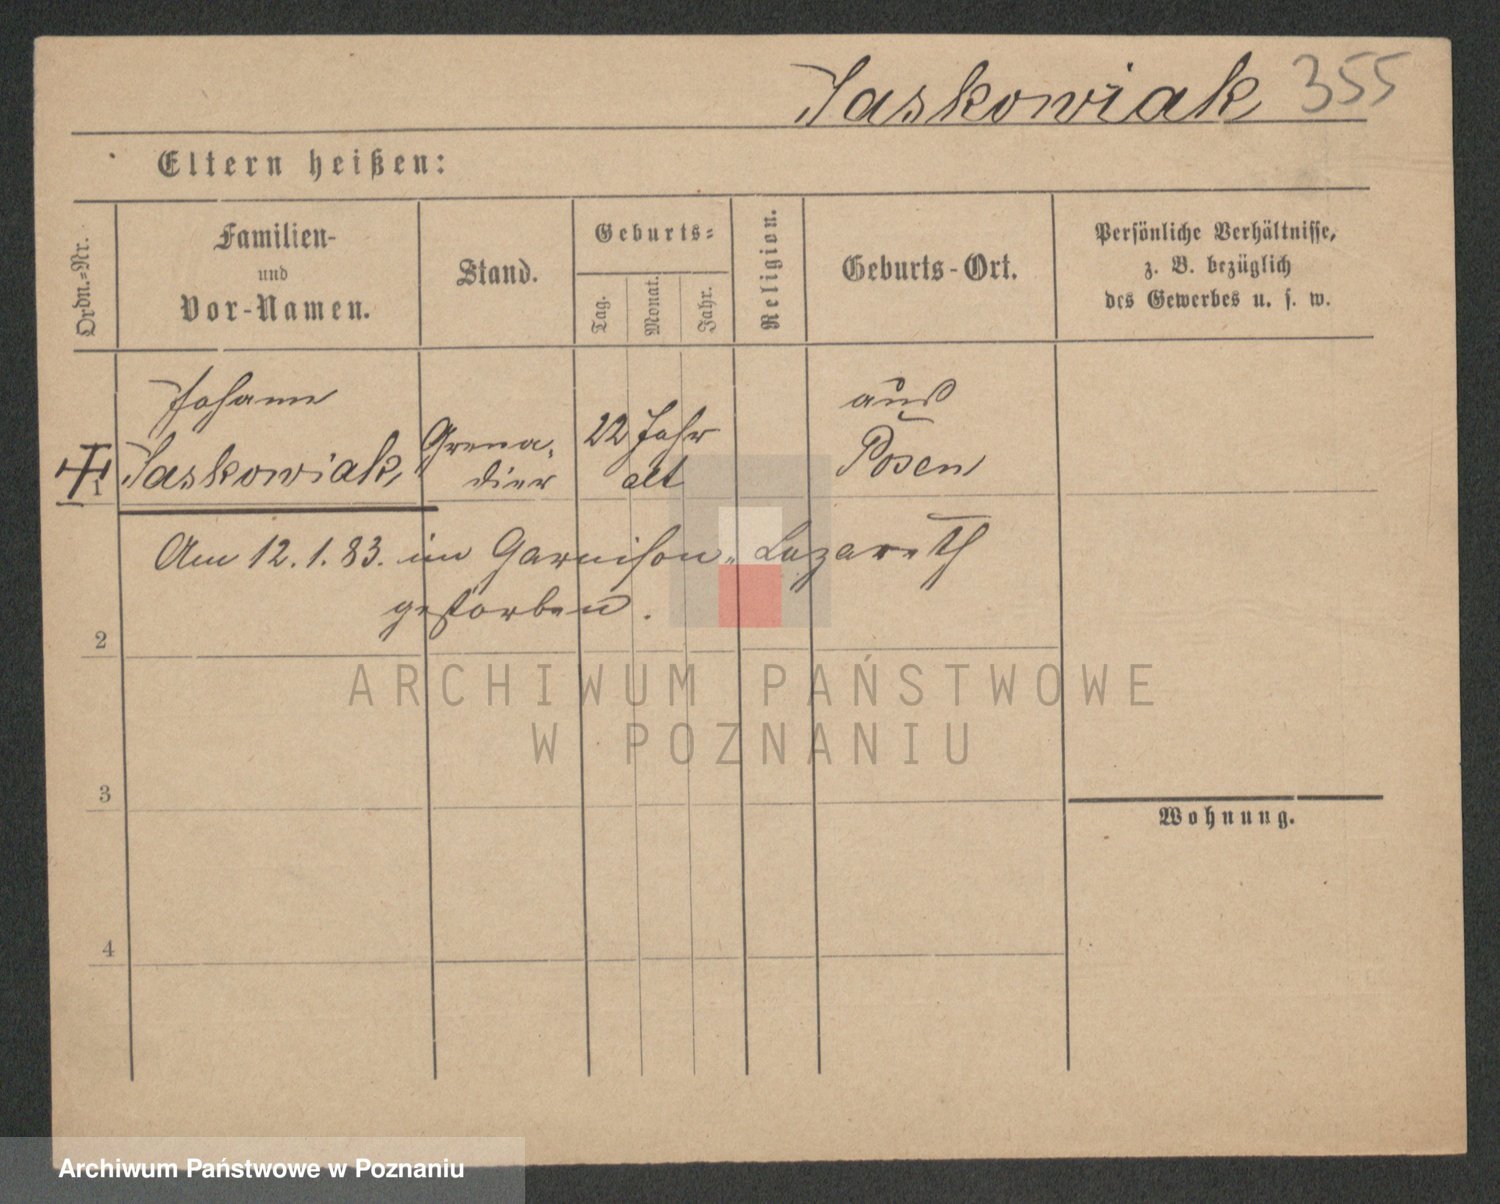 Jaskowiak 355
Eltern heißen:
Ordn.-Nr.
Familien-
und
Vor-Namen.
Stand.
Geburts-
Tag.
Monat.
Jahr.
Religion.
Geburts-Ort.
Persönliche Verhältnisse,
z. B. bezüglich
des Gewerbes u. s. w.
1
Johann
Jaskowiak,
Grena-
dier
22 Jahr
alt
aus
Posen
Am 12.1.83. im Garnison-Lazareth
gestorben.
2
3
4
Wohnung.
ARCHIWUM PAŃSTWOWE
W POZNANIU
Archiwum Państwowe w Poznaniu